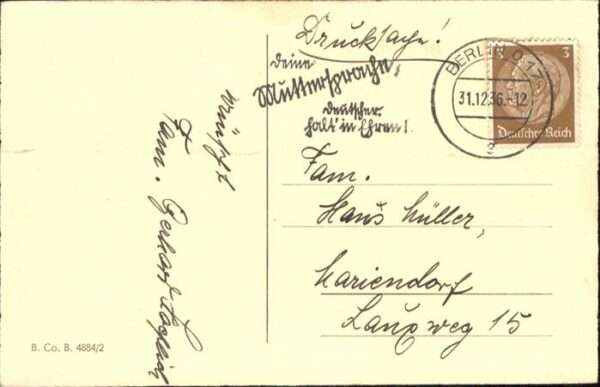 wünscht
Fam. Gerhard
Drucksache!
Deine
Muttersprache,
Deutscher
halt' in Ehren!
BERLIN O 17
31.12.36.-12
a
3
Deutsches Reich
Fam.
Hans Müller,
Mariendorf
Lauxweg 15
B. Co. B. 4884/2